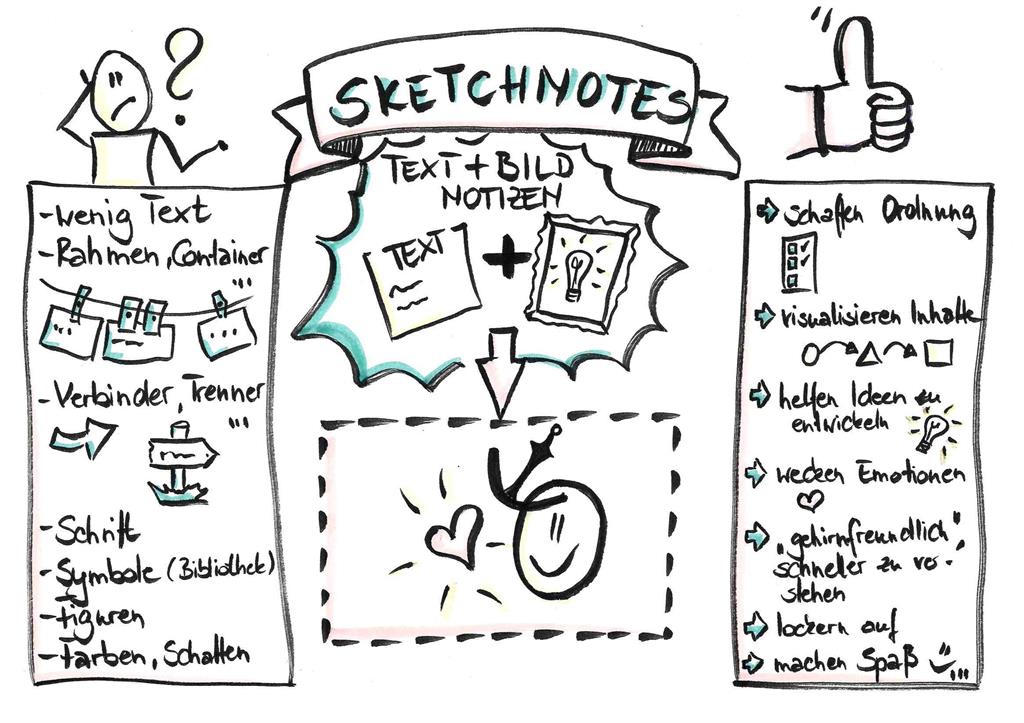 SKETCHNOTES
TEXT + BILD
NOTIZEN
TEXT
+
?
- wenig Text
- Rahmen, Container
...
- Verbinder, Trenner
...
- Schrift
- Symbole (Bibliothek)
- Figuren
- Farben, Schatten
schaffen Ordnung
visualisieren Inhalte
helfen Ideen zu
entwickeln
wecken Emotionen
"gehirnfreundlich",
schneller zu ver-
stehen
lockern auf
machen Spaß ...